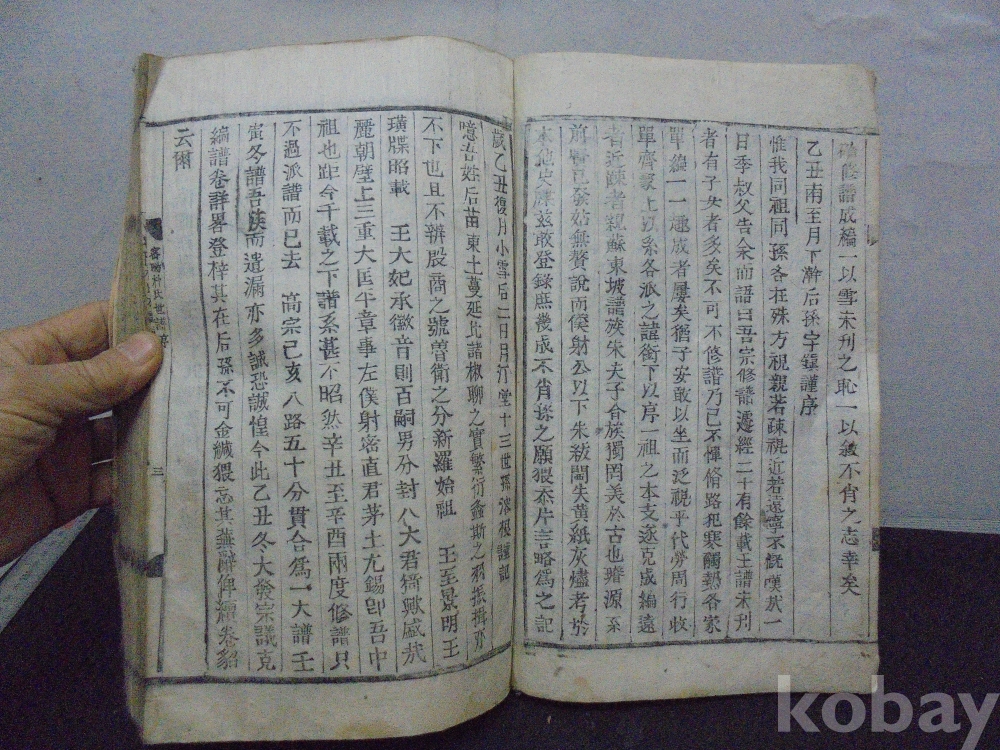 修譜成編一以雪未刊之恥一以敍不肖之志幸矣
乙丑南至月下澣后孫宇鎭謹序
惟我同祖同孫各在殊方視親若疎視近若遠寧不慨嘆哉一
日季叔父告余而語曰吾宗修譜經二十有餘載王譜未刊
者有子女者多矣不可不修譜乃已不憚脩路犯寒觸熱各家
單一一趣成者屢矣猶子安敢以坐而泛視乎代勞周行收
單齊上以系各派之諱銜下以序一祖之本支逐克成編遠
者近疎者親蘇東坡譜族朱夫子會族獨罔美於古也源系
前賢已發姑無贅說而僕射公以下朱紱閥失黃紙灰燼考於
本他史牒玆敢登錄庶幾成不肖孫之願猥忝片言略爲之記
歲乙丑復月小雪后二日月汀堂十三世孫謹記
噫吾姓后苗東土蔓延比諸椒聊之實繁衍螽斯之羽振揖亦
不下也且不辨殷商之號曾衛之分新羅始祖 王至景明王
璜牒昭載 王大妃承徽音則百嗣男分封八大君猗歟盛哉
麗朝壁上三重大匡平章事左僕射密直君茅土尤錫卽吾中
祖也距今千載之下譜系甚不昭然辛丑至辛酉兩度修譜只
不過派譜而已去 高宗己亥八路五十分貫合爲一大譜壬
寅冬譜吾族而遺漏亦多誠恐誠惶今此乙丑冬大發宗議克
編譜卷詳畧登梓其在后孫不可金緘猥忘其蕪辭俾續卷貂
云爾
密陽朴氏世譜序
三
kobay